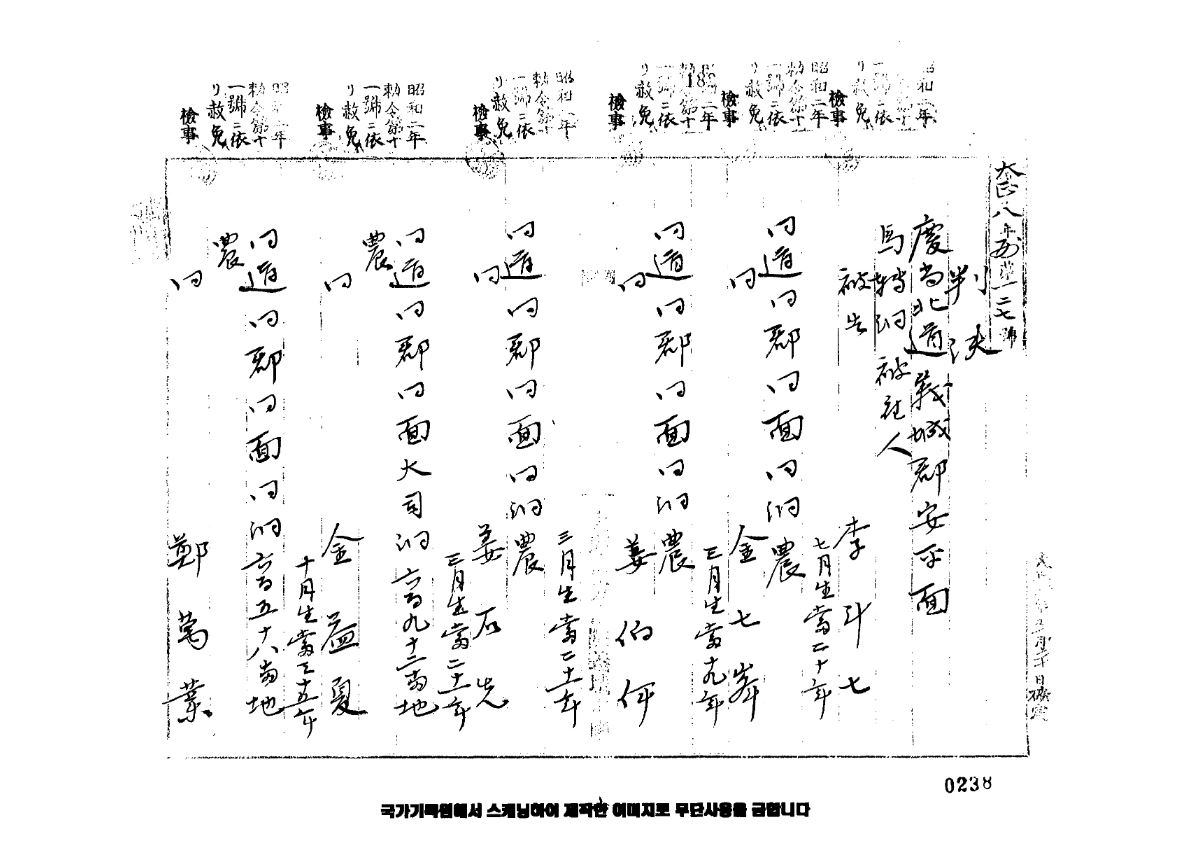 大正八年刑第一二七號
判決
慶尚北道義城郡安平面
馬轉洞 被社人
被告 李斗七
七月生當二十年
同道同郡同面同洞 農
同 金七峯
三月生當十九年
同道同郡同面同洞 農
同 姜伯伊
三月生當二十一年
同道同郡同面同洞 農
同 姜石先
三月生當二十一年
同道同郡同面大司洞六百九十二番地
農
同 金益夏
十月生當三十五年
同道同郡同面同洞六百五十八番地
農
同 鄭萬業
昭和二年
勅令第十
一號ニ依
リ赦免
檢事
昭和二年
勅令第十
一號ニ依
リ赦免
檢事
昭和二年
勅令第十
一號ニ依
リ赦免
檢事
昭和二年
勅令第十
一號ニ依
リ赦免
檢事
昭和二年
勅令第十
一號ニ依
リ赦免
檢事
昭和二年
勅令第十
一號ニ依
リ赦免
檢事
188
0238
국가기록원에서 스캐닝하여 제작한 이미지로 무단사용을 금합니다